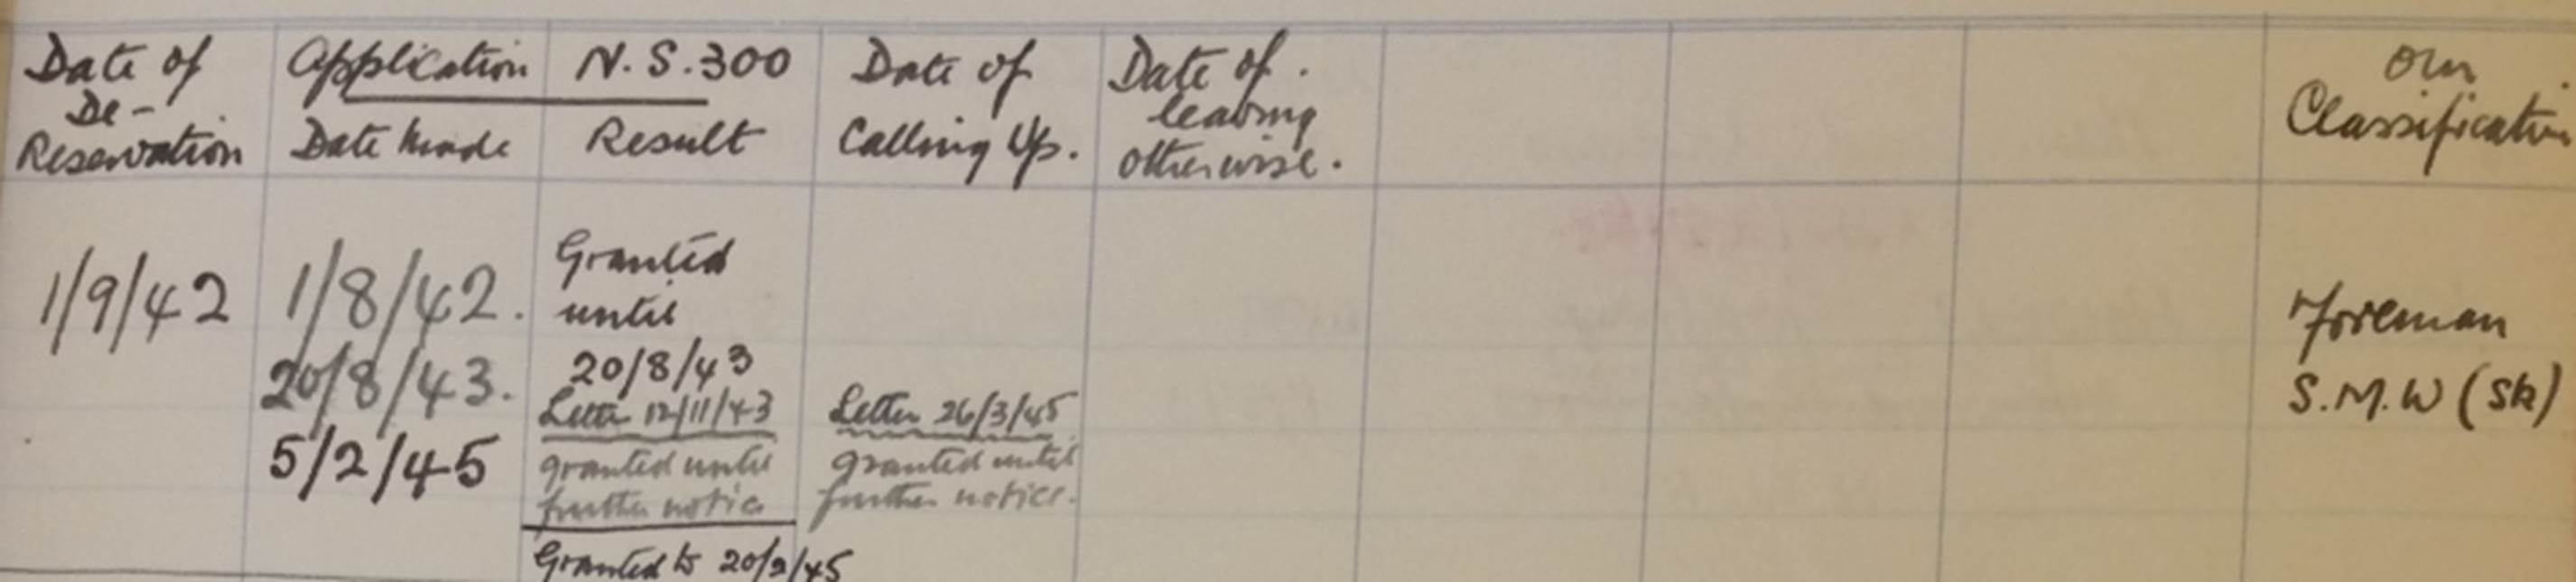 Date of
De-
Reservation
Application N.S.300
Date Made
Result
Date of
Calling Up.
Date of.
leaving
otherwise.
Our
Classification
1/9/42
1/8/42.
20/8/43.
5/2/45
Granted
until
20/8/43
Letter 12/11/43
granted until
further notice
Granted to 20/2/45
Letter 26/3/45
granted until
further notice.
Foreman
S.M.W (Sk)